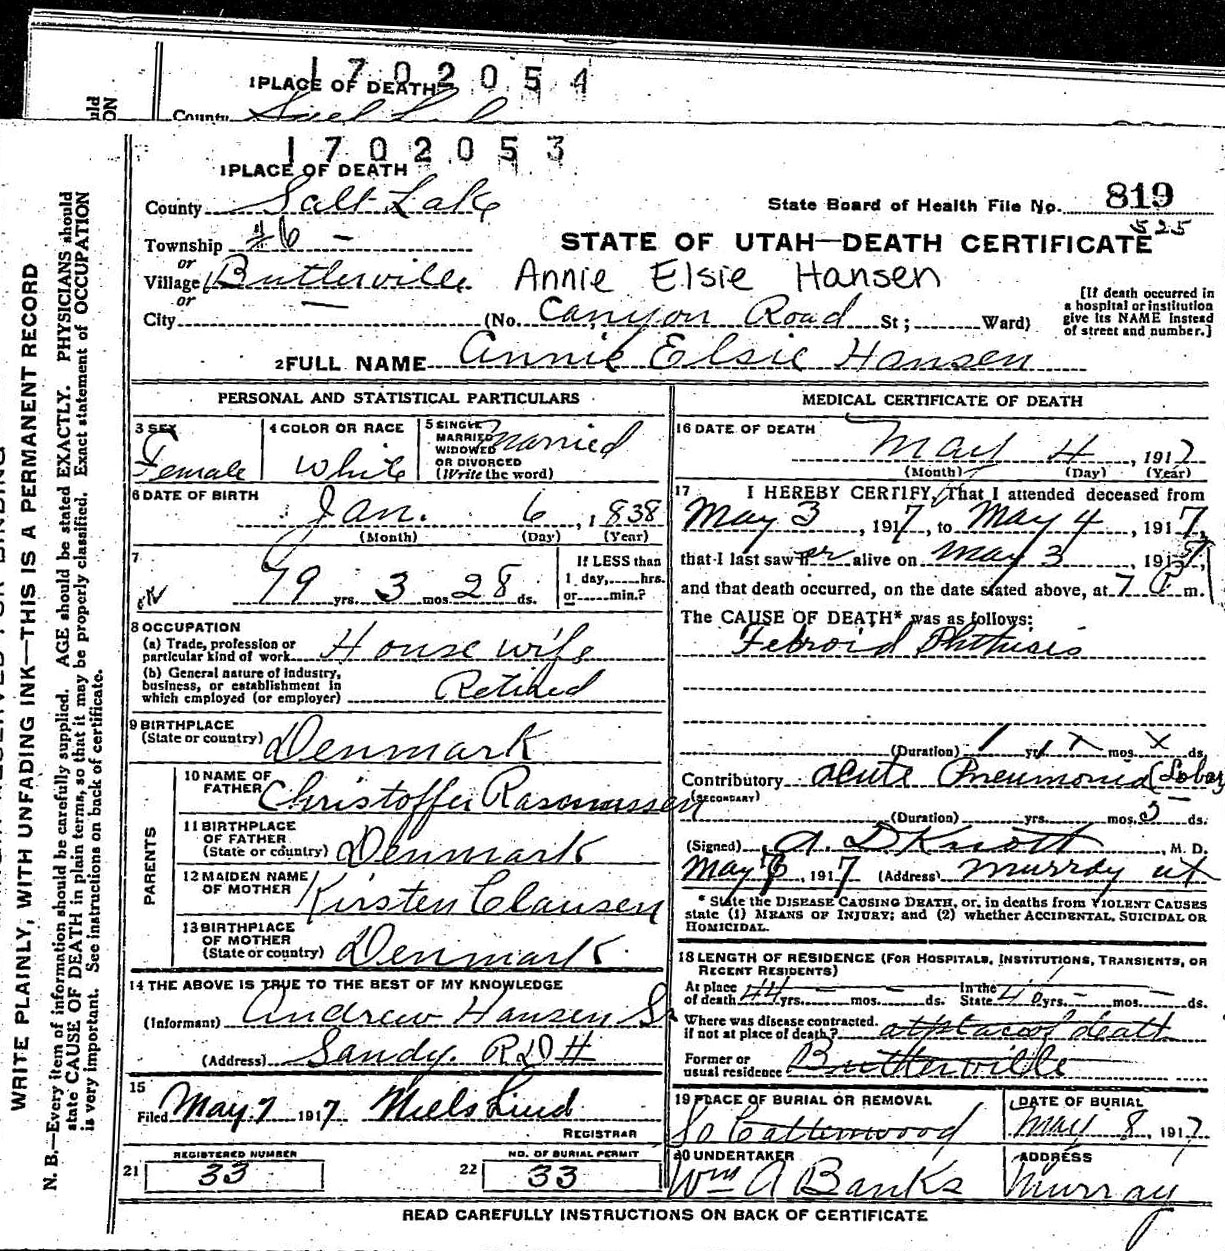 1 7 0 2 0 5 4
1 PLACE OF DEATH
County
1 7 0 2 0 5 3
1 PLACE OF DEATH
County Salt Lake
State Board of Health File No. 819
525
Township #6 —
STATE OF UTAH—DEATH CERTIFICATE
or
Village Butlerville
Annie Elsie Hansen
or
City — (No. Canyon Road St ; Ward)
[If death occurred in
a hospital or institution
give its NAME instead
of street and number.]
2 FULL NAME Annie Elsie Hansen
PERSONAL AND STATISTICAL PARTICULARS
3 SEX
Female
4 COLOR OR RACE
White
5 SINGLE
MARRIED
WIDOWED
OR DIVORCED
(Write the word)
Married
6 DATE OF BIRTH
Jan. 6, 1838
(Month) (Day) (Year)
7
79 yrs. 3 mos. 28 ds.
If LESS than
1 day, hrs.
or min.?
8 OCCUPATION
(a) Trade, profession or
particular kind of work Housewife
(b) General nature of industry,
business, or establishment in
which employed (or employer) Retired
9 BIRTHPLACE
(State or country) Denmark
PARENTS
10 NAME OF
FATHER Christoffer Rasmussen
11 BIRTHPLACE
OF FATHER
(State or country) Denmark
12 MAIDEN NAME
OF MOTHER Kirsten Clausen
13 BIRTHPLACE
OF MOTHER
(State or country) Denmark
14 THE ABOVE IS TRUE TO THE BEST OF MY KNOWLEDGE
(Informant) Andrew Hansen Sr
(Address) Sandy. R D #
15
Filed May 7 1917 Niels Lind
REGISTRAR
REGISTERED NUMBER
21 33
NO. OF BURIAL PERMIT
22 33
MEDICAL CERTIFICATE OF DEATH
16 DATE OF DEATH
May 4, 1917
(Month) (Day) (Year)
17 I HEREBY CERTIFY, That I attended deceased from
May 3, 1917, to May 4, 1917,
that I last saw her alive on May 3, 1917,
and that death occurred, on the date stated above, at 7 m.
The CAUSE OF DEATH* was as follows:
Febroid Phthisis
(Duration) 1 yrs. x mos. x ds.
Contributory Acute Pneumonia (Lobar)
(SECONDARY)
(Duration) yrs. mos. 5 ds.
(Signed) A. D Knott, M. D.
May, 1917 (Address) Murray ut
* State the DISEASE CAUSING DEATH, or, in deaths from VIOLENT CAUSES
state (1) MEANS OF INJURY; and (2) whether ACCIDENTAL, SUICIDAL OR
HOMICIDAL.
18 LENGTH OF RESIDENCE (FOR HOSPITALS, INSTITUTIONS, TRANSIENTS, OR
RECENT RESIDENTS)
At place In the
of death 44 yrs. — mos. ds. State 40 yrs. — mos. ds.
Where was disease contracted,
if not at place of death? at place of death
Former or
usual residence Butlerville
19 PLACE OF BURIAL OR REMOVAL
So Cottenwood
DATE OF BURIAL
May 8, 1917
20 UNDERTAKER
Wm A Banks
ADDRESS
Murray
READ CAREFULLY INSTRUCTIONS ON BACK OF CERTIFICATE
WRITE PLAINLY, WITH UNFADING INK—THIS IS A PERMANENT RECORD
N. B.—Every item of information should be carefully supplied. AGE should be stated EXACTLY. PHYSICIANS should
state CAUSE OF DEATH in plain terms, so that it may be properly classified. Exact statement of OCCUPATION
is very important. See instructions on back of certificate.